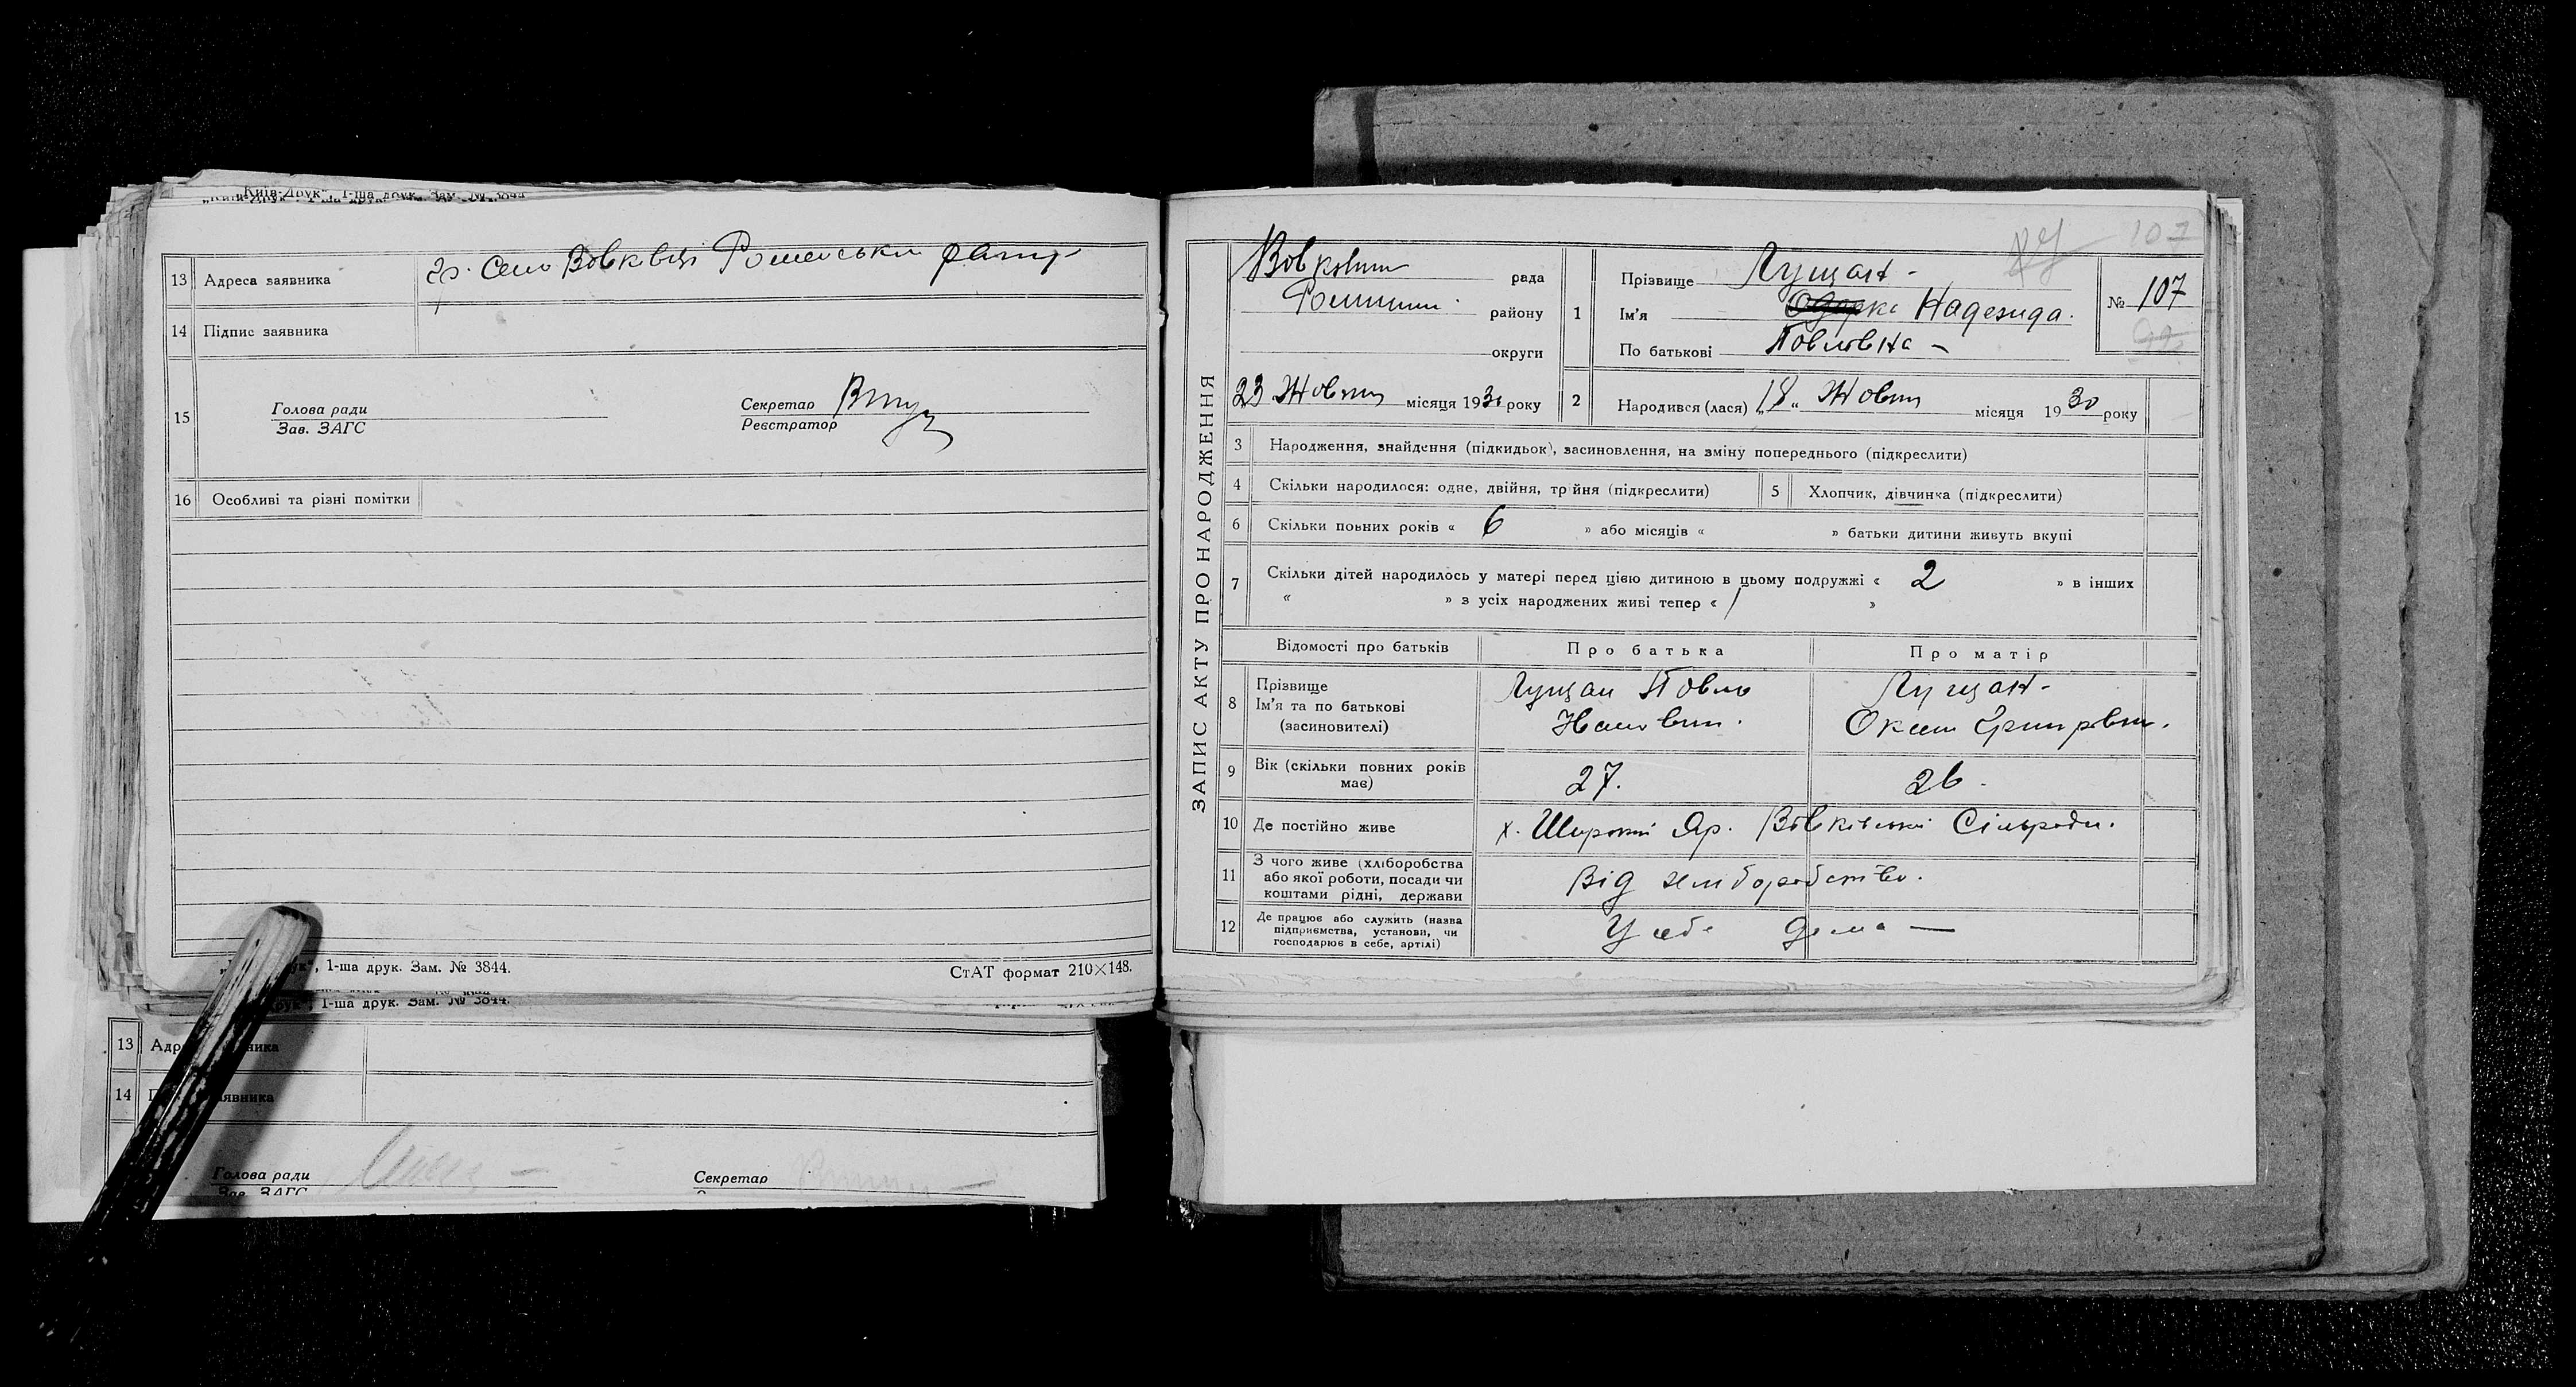 „Київ-Друк“, 1-ша друк. Зам. № 3844
13 Адреса заявника
Село Вовківці Роменськи
14 Підпис заявника
15 Голова ради
Зав. ЗАГС
Секретар
Реєстратор
16 Особливі та різні помітки
1-ша друк. Зам. № 3844.
СтАТ формат 210×148.
1-ша друк. Зам. № 3844.
13
14
Голова ради
Зав. ЗАГС
Секретар
ЗАПИС АКТУ ПРО НАРОДЖЕННЯ
рада
району
округи
23 Жовтн місяця 1930 року
107
1 Прізвище Лущан -
Ім'я Надежда.
По батькові Повловна -
№ 107
2 Народився (лася) „18“ Жовтн місяця 1930 року
3 Народження, знайдення (підкидьок), засиновлення, на зміну попереднього (підкреслити)
4 Скільки народилося: одне, двійня, трійня (підкреслити)
5 Хлопчик, дівчинка (підкреслити)
6 Скільки повних років « 6 » або місяців « » батьки дитини живуть вкупі
7 Скільки дітей народилось у матері перед цією дитиною в цьому подружжі « 2 » в інших
« » з усіх народжених живі тепер « 1 »
Відомості про батьків
Про батька
Про матір
8 Прізвище
Ім'я та по батькові
(засиновителі)
Лущан Повло
Лущан -
9 Вік (скільки повних років має)
27.
26.
10 Де постійно живе
х. Широкий Яр. Вовківської Сільради.
11 З чого живе (хліборобства
або якої роботи, посади чи
коштами рідні, держави
Від земборобство.
12 Де працює або служить (назва
підприємства, установи, чи
господарює в себе, артілі)
У себе дома —